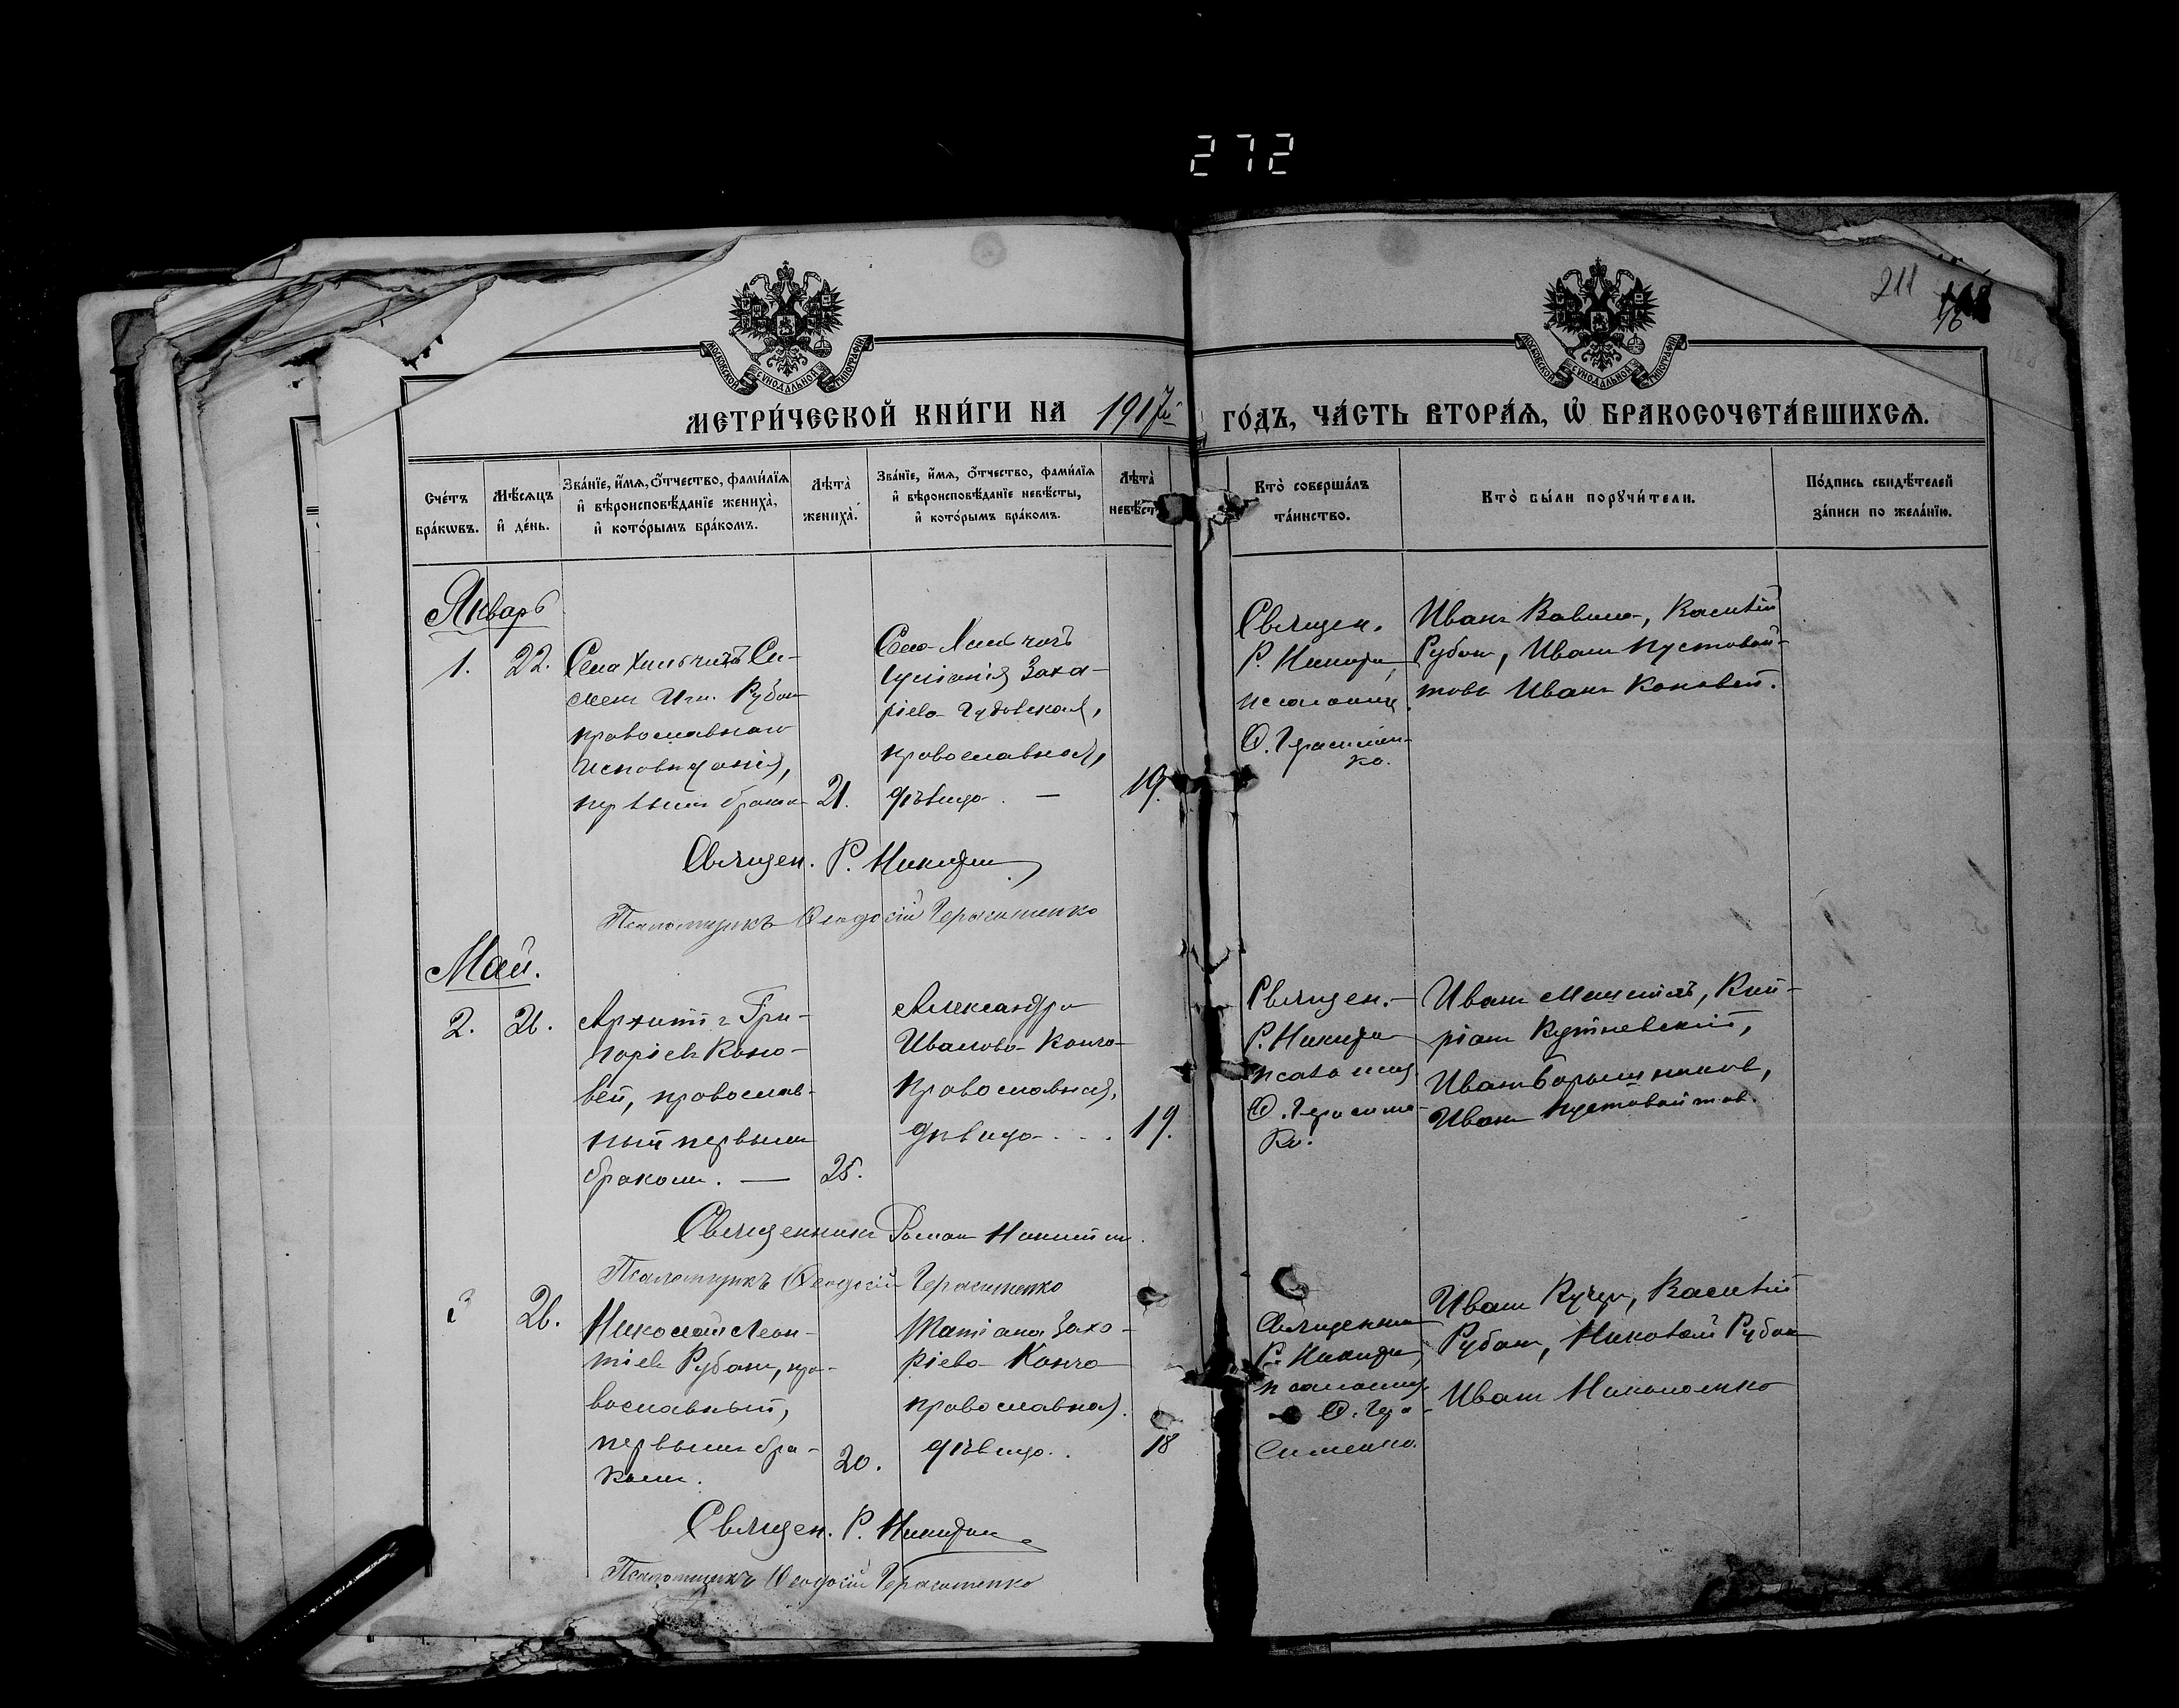 272
211
МОСКОВСКОЙ СУНОДАЛЬНОЙ ТИПОГРАФІИ
МОСКОВСКОЙ СУНОДАЛЬНОЙ ТИПОГРАФІИ
МЕТРИ́ЧЕСКОЙ КНИ́ГИ НА 1917й ГО́ДЪ, ЧА́СТЬ ВТОРА́Ѧ, Ѡ҆ БРАКОСОЧЕТА́ВШИХСѦ.
Сче́тъ бра́кѡвъ.
Мѣ́сѧцъ и҆ де́нь.
Зва́нїе, и҆́мѧ, ѻ҆́тчество, фами́лїѧ
и҆ вѣроисповѣ́данїе жениха̀,
и҆ кото́рымъ бра́комъ.
Лѣта̀ жениха̀.
Зва́нїе, и҆́мѧ, ѻ҆́тчество, фами́лїѧ
и҆ вѣроисповѣ́данїе невѣ́сты,
и҆ кото́рымъ бра́комъ.
Лѣта̀
Кто̀ соверша́лъ та́инство.
Кто̀ бы́ли порꙋчи́тели.
По́дпись свидѣ́телей за́писи по жела́нїю.
Январь
1.
22.
Села
Рубан
православнаго
исповѣданія,
первым браком
21.
Село
Заха-
ріева Чудовская,
православная,
дѣвица. —
19.
Священ.
Р. Никитин,
псаломщ.
Ѳ. Герасимен-
ко.
Иван Вавило, Василій
Рубан, Иван Пустовой-
тов Иван Коновей.
Священ. Р. Никитин
Псаломщикъ Ѳеодосій Герасименко
Май.
2.
26.
Архипп Гри-
горіев Коно-
вей, православ-
ный первым
браком. —
25.
Александра
Иванова Конча
православная,
дѣвица . . .
19.
Священ.
Р. Никитин
псаломщ.
Ѳ. Герасимен-
ко.
Иван
Кип-
ріан Кутневский,
Иван
Иван Пустовойтов.
Священник Роман Никитин.
Псаломщикъ Ѳеодосій Герасименко
3
26.
Николай Леон-
тіев Рубан, пра-
вославный,
первым бра-
ком.
20.
Татіана Заха-
ріева Конча
православная.
дѣвица.
18
Священник
Р. Никитин,
псаломщ.
Ѳ. Гера-
сименко.
Иван Кучер, Василій
Рубан, Николай Рубан
Иван Николаенко
Священ. Р. Никитин
Псаломщикъ Ѳеодосій Герасименко